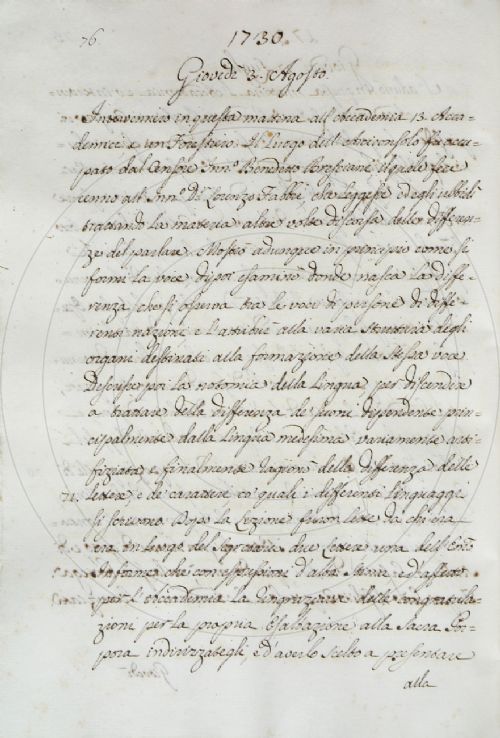 76 1730.
Giovedì 3. Agosto.
Intervennero in questa mattina all'Accademia 13. Acca-
demici e un Forestiero. Il luogo dell'Arciconsolo fu occu-
pato dal Censore Inn.º Benedetto Bresciani il quale fece
cenno all'Inn.º D.r Lorenzo Fabbri, che leggesse, ed egli ubbidì
trattando la materia altre volte discorsa delle differen-
ze del parlare. Mostrò adunque in principio come si
formi la voce dipoi esaminò donde nasca la diffe-
renza, che si osserva tra le voci di persone di diffe-
renti nazioni e l'attribuì alla varia struttura degli
organi destinati alla formazione della stessa voce
Descrisse poi la notomia della Lingua, per discender
a trattare della differenza de' suoni dependente prin-
cipalmente dalla Lingua medesima variamente arti-
fiziata, e finalmente ragionò della differenza delle
lettere e de' caratteri co' quali i differenti linguaggi
si scrivono. Dopo la Lezione furon lette da chi era
in luogo del Segretario due Lettere una dell'
che con espressioni d'alta stima, e d'affetto
per l'Accademia la ringraziava delle congratula-
zioni per la propria Esaltazione alla Sacra Por-
pora indirizzategli, e d'averlo scelto a presentare
alla